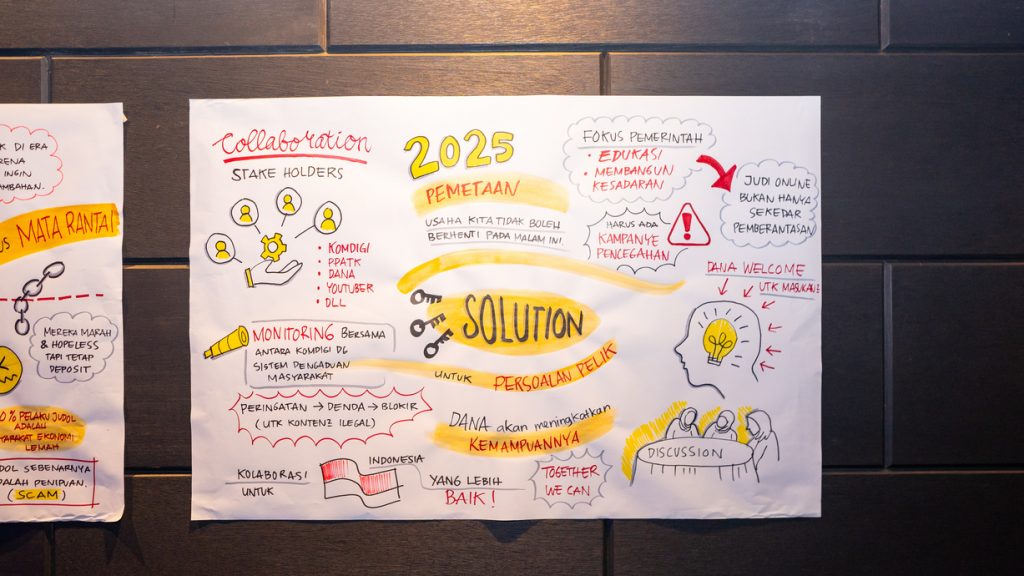 K DI ERA
INGIN
MATA RANTAI
MEREKA MARAH
& HOPELESS
TAPI TETAP
DEPOSIT
% PELAKU JUDOL
ADALAH
EKONOMI
LEMAH
SEBENARNYA
PENIPUAN.
(SCAM)
Collaboration
STAKE HOLDERS
• KOMDIGI
• PPATK
• DANA
• YOUTUBER
• DLL
MONITORING BERSAMA
ANTARA KOMDIGI DG
SISTEM PENGADUAN
MASYARAKAT
PERINGATAN → DENDA → BLOKIR
( UTK KONTEN2 ILEGAL )
KOLABORASI
UNTUK
INDONESIA
YANG LEBIH
BAIK !
2025
PEMETAAN
USAHA KITA TIDAK BOLEH
BERHENTI PADA MALAM INI.
SOLUTION
UNTUK PERSOALAN PELIK
DANA akan meningkatkan
KEMAMPUANNYA
TOGETHER
WE CAN
FOKUS PEMERINTAH
• EDUKASI
• MEMBANGUN
KESADARAN
HARUS ADA
KAMPANYE
PENCEGAHAN
!
JUDI ONLINE
BUKAN HANYA
SEKEDAR
PEMBERANTASAN
DANA WELCOME
UTK MASUKAN2
DISCUSSION